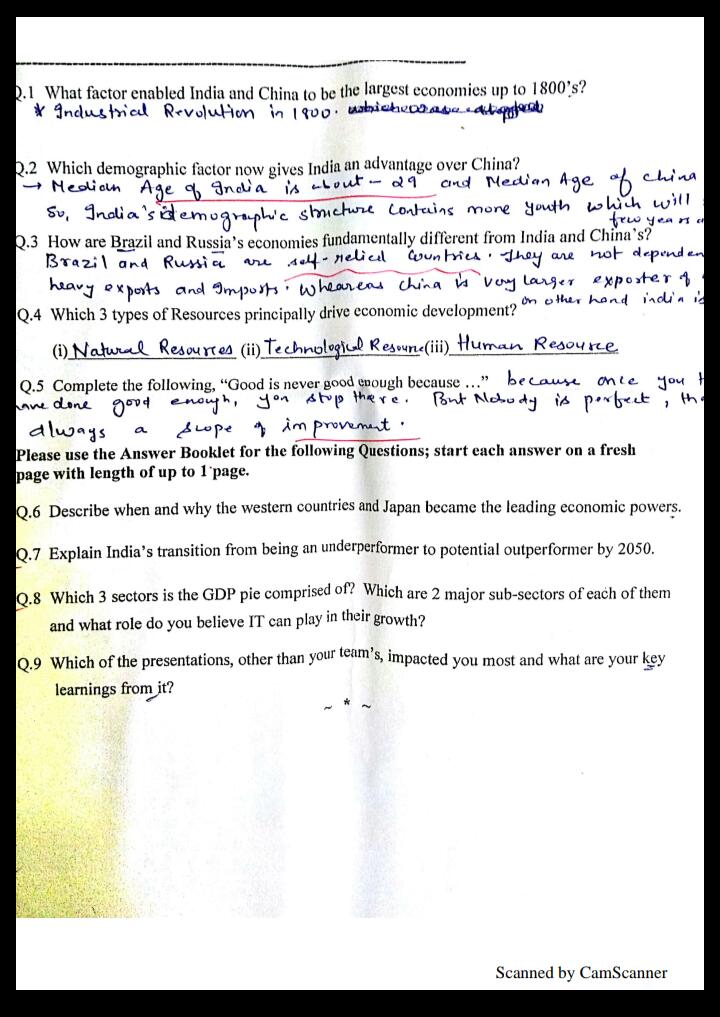 Q.1 What factor enabled India and China to be the largest economies up to 1800's?
* Industrial Revolution in 1800.
Q.2 Which demographic factor now gives India an advantage over China?
→ Median Age of India is about - 29 and Median Age of China
So, India's demographic structure contains more youth which will
few years
Q.3 How are Brazil and Russia's economies fundamentally different from India and China's?
Brazil and Russia are self-relied Countries. They are not dependen
heavy exports and Imports. Wheareas China is very larger exporter of
on other hand india is
Q.4 Which 3 types of Resources principally drive economic development?
(i) Natural Resources (ii) Technological Resource (iii) Human Resource
Q.5 Complete the following, “Good is never good enough because ...” because once you
have done good enough, you stop there. But Nobody is perfect,
always a scope of improvement.
Please use the Answer Booklet for the following Questions; start each answer on a fresh
page with length of up to 1 page.
Q.6 Describe when and why the western countries and Japan became the leading economic powers.
Q.7 Explain India's transition from being an underperformer to potential outperformer by 2050.
Q.8 Which 3 sectors is the GDP pie comprised of? Which are 2 major sub-sectors of each of them
and what role do you believe IT can play in their growth?
Q.9 Which of the presentations, other than your team's, impacted you most and what are your key
learnings from it?
~ * ~
Scanned by CamScanner